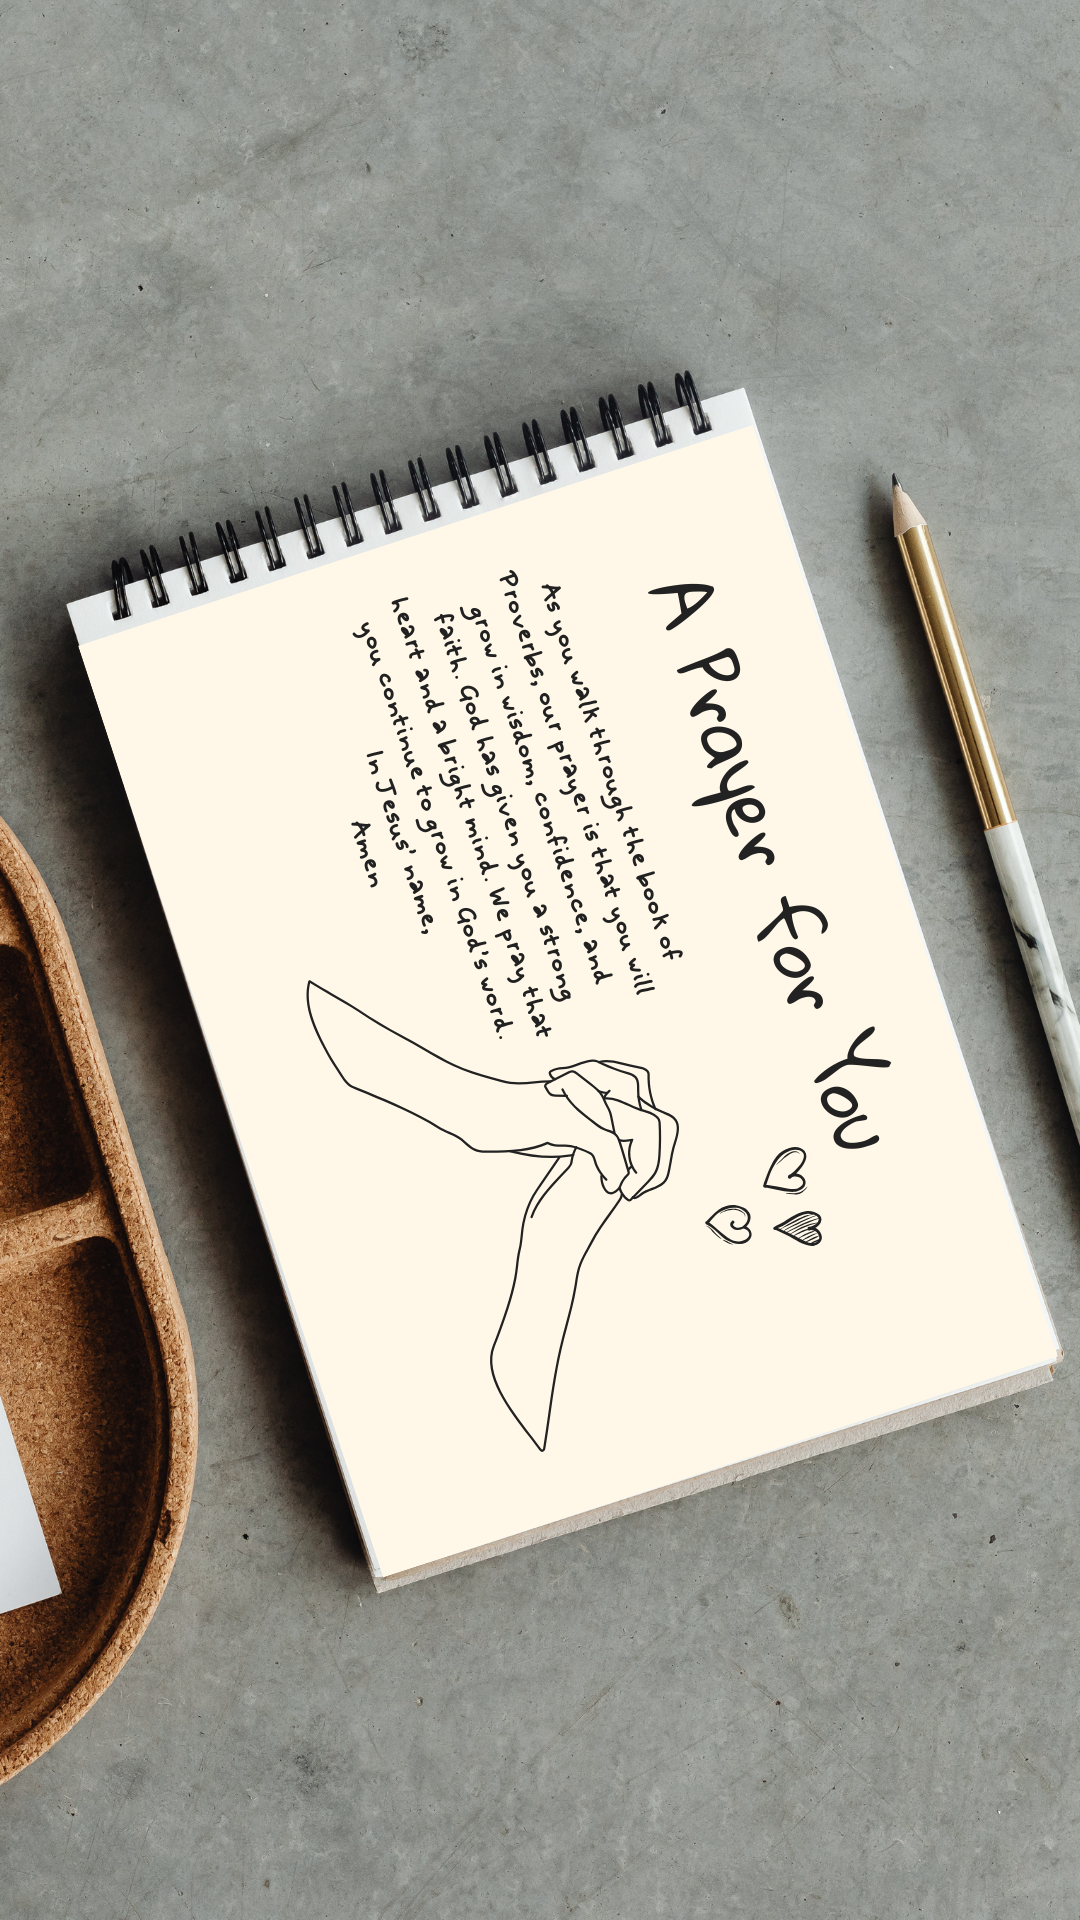 A Prayer for You
As you walk through the book of
Proverbs, our prayer is that you will
grow in wisdom, confidence, and
faith. God has given you a strong
heart and a bright mind. We pray that
you continue to grow in God's word.
In Jesus' name,
Amen